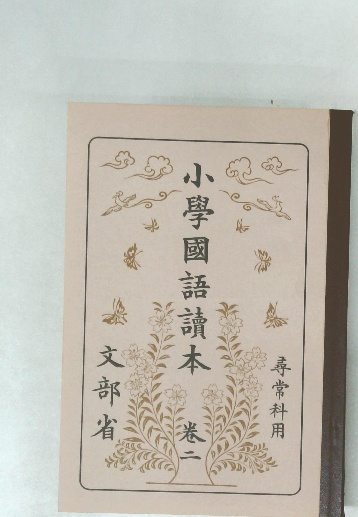 尋常科用
小學國語讀本 卷二
文部省